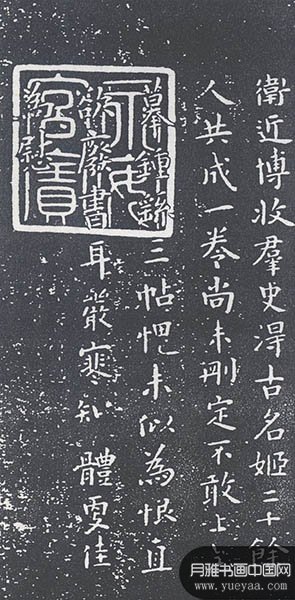 衛近博收羣史淂古名姬二十餘
人共成一卷尚未刪定不敢上
摹鍾繇三帖悒未似為恨且
欲廢書耳嚴寒知體更佳
為慰
月雅书画中国网
www.yueyaa.com